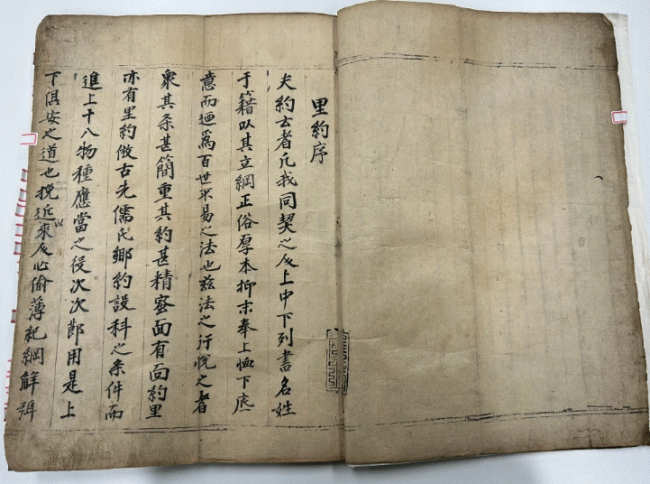 里約序
夫約玄者凡我同契之友上中下列書名姓
于籍以其立綱正俗厚本抑末奉上恤下底
意而迺爲百世不易之法也玆法之行悅之者
衆其条甚簡重其約甚精密面有面約里
亦有里約倣古先儒氏鄕約設科之条件而
進上千八物種應當之役次次節用是上
下俱安之道也挽近以來反心偷薄紀綱解弛